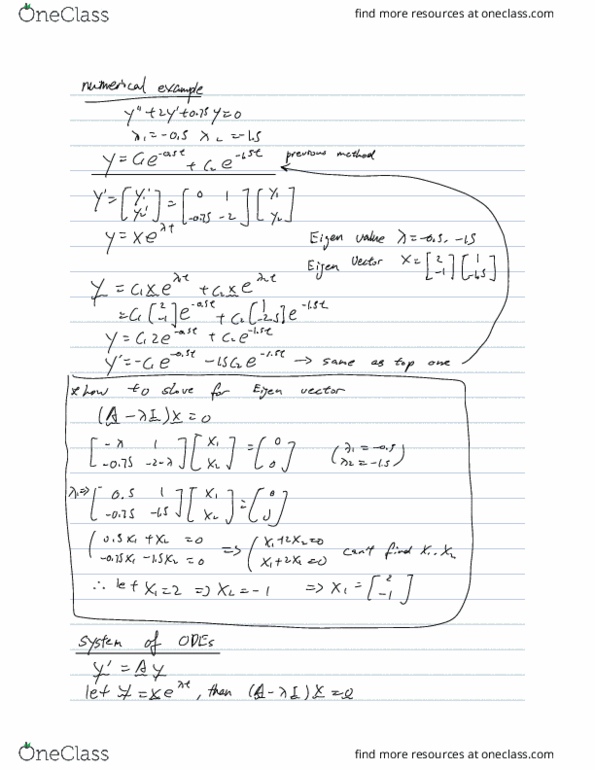 OneClass
find more resources at oneclass.com
numerical example
y'' + 2y' + 0.75 y = 0
λ₁ = -0.5 λ₂ = -1.5
y = C₁e^-0.5t + C₂e^-1.5t previous method
Y' = [y₁' y₂'] = [0 1 -0.75 -2] [y₁ y₂]
y = xe^λt
Eigen value λ = -0.5, -1.5
Eigen vector X = [2 -1] [1 -1.5]
y = C₁xe^λt + C₂xe^λ₂t
= C₁[2 -1]e^-0.5t + C₂[1 -2.5]e^-1.5t
y = C₁2e^-0.5t + C₂e^-1.5t
y' = -C₁e^-0.5t - 1.5C₂e^-1.5t → same as top one
* how to slove for Eigen vector
(A - λI)x = 0
[-λ 1 -0.75 -2-λ] [x₁ x₂] = [0 0] (λ₁ = -0.5 λ₂ = -1.5)
λ₁ => [0.5 1 -0.75 -1.5] [x₁ x₂] = [0 0]
(0.5x₁ + x₂ = 0 -0.75x₁ - 1.5x₂ = 0 => (x₁ + 2x₂ = 0 x₁ + 2x₂ = 0 can't find x₁, x₂
∴ let x₁ = 2 => x₂ = -1 => x₁ = [2 -1]
System of ODEs
y' = A y
let y = xe^λt, then (A - λI) x = 0
OneClass
find more resources at oneclass.com